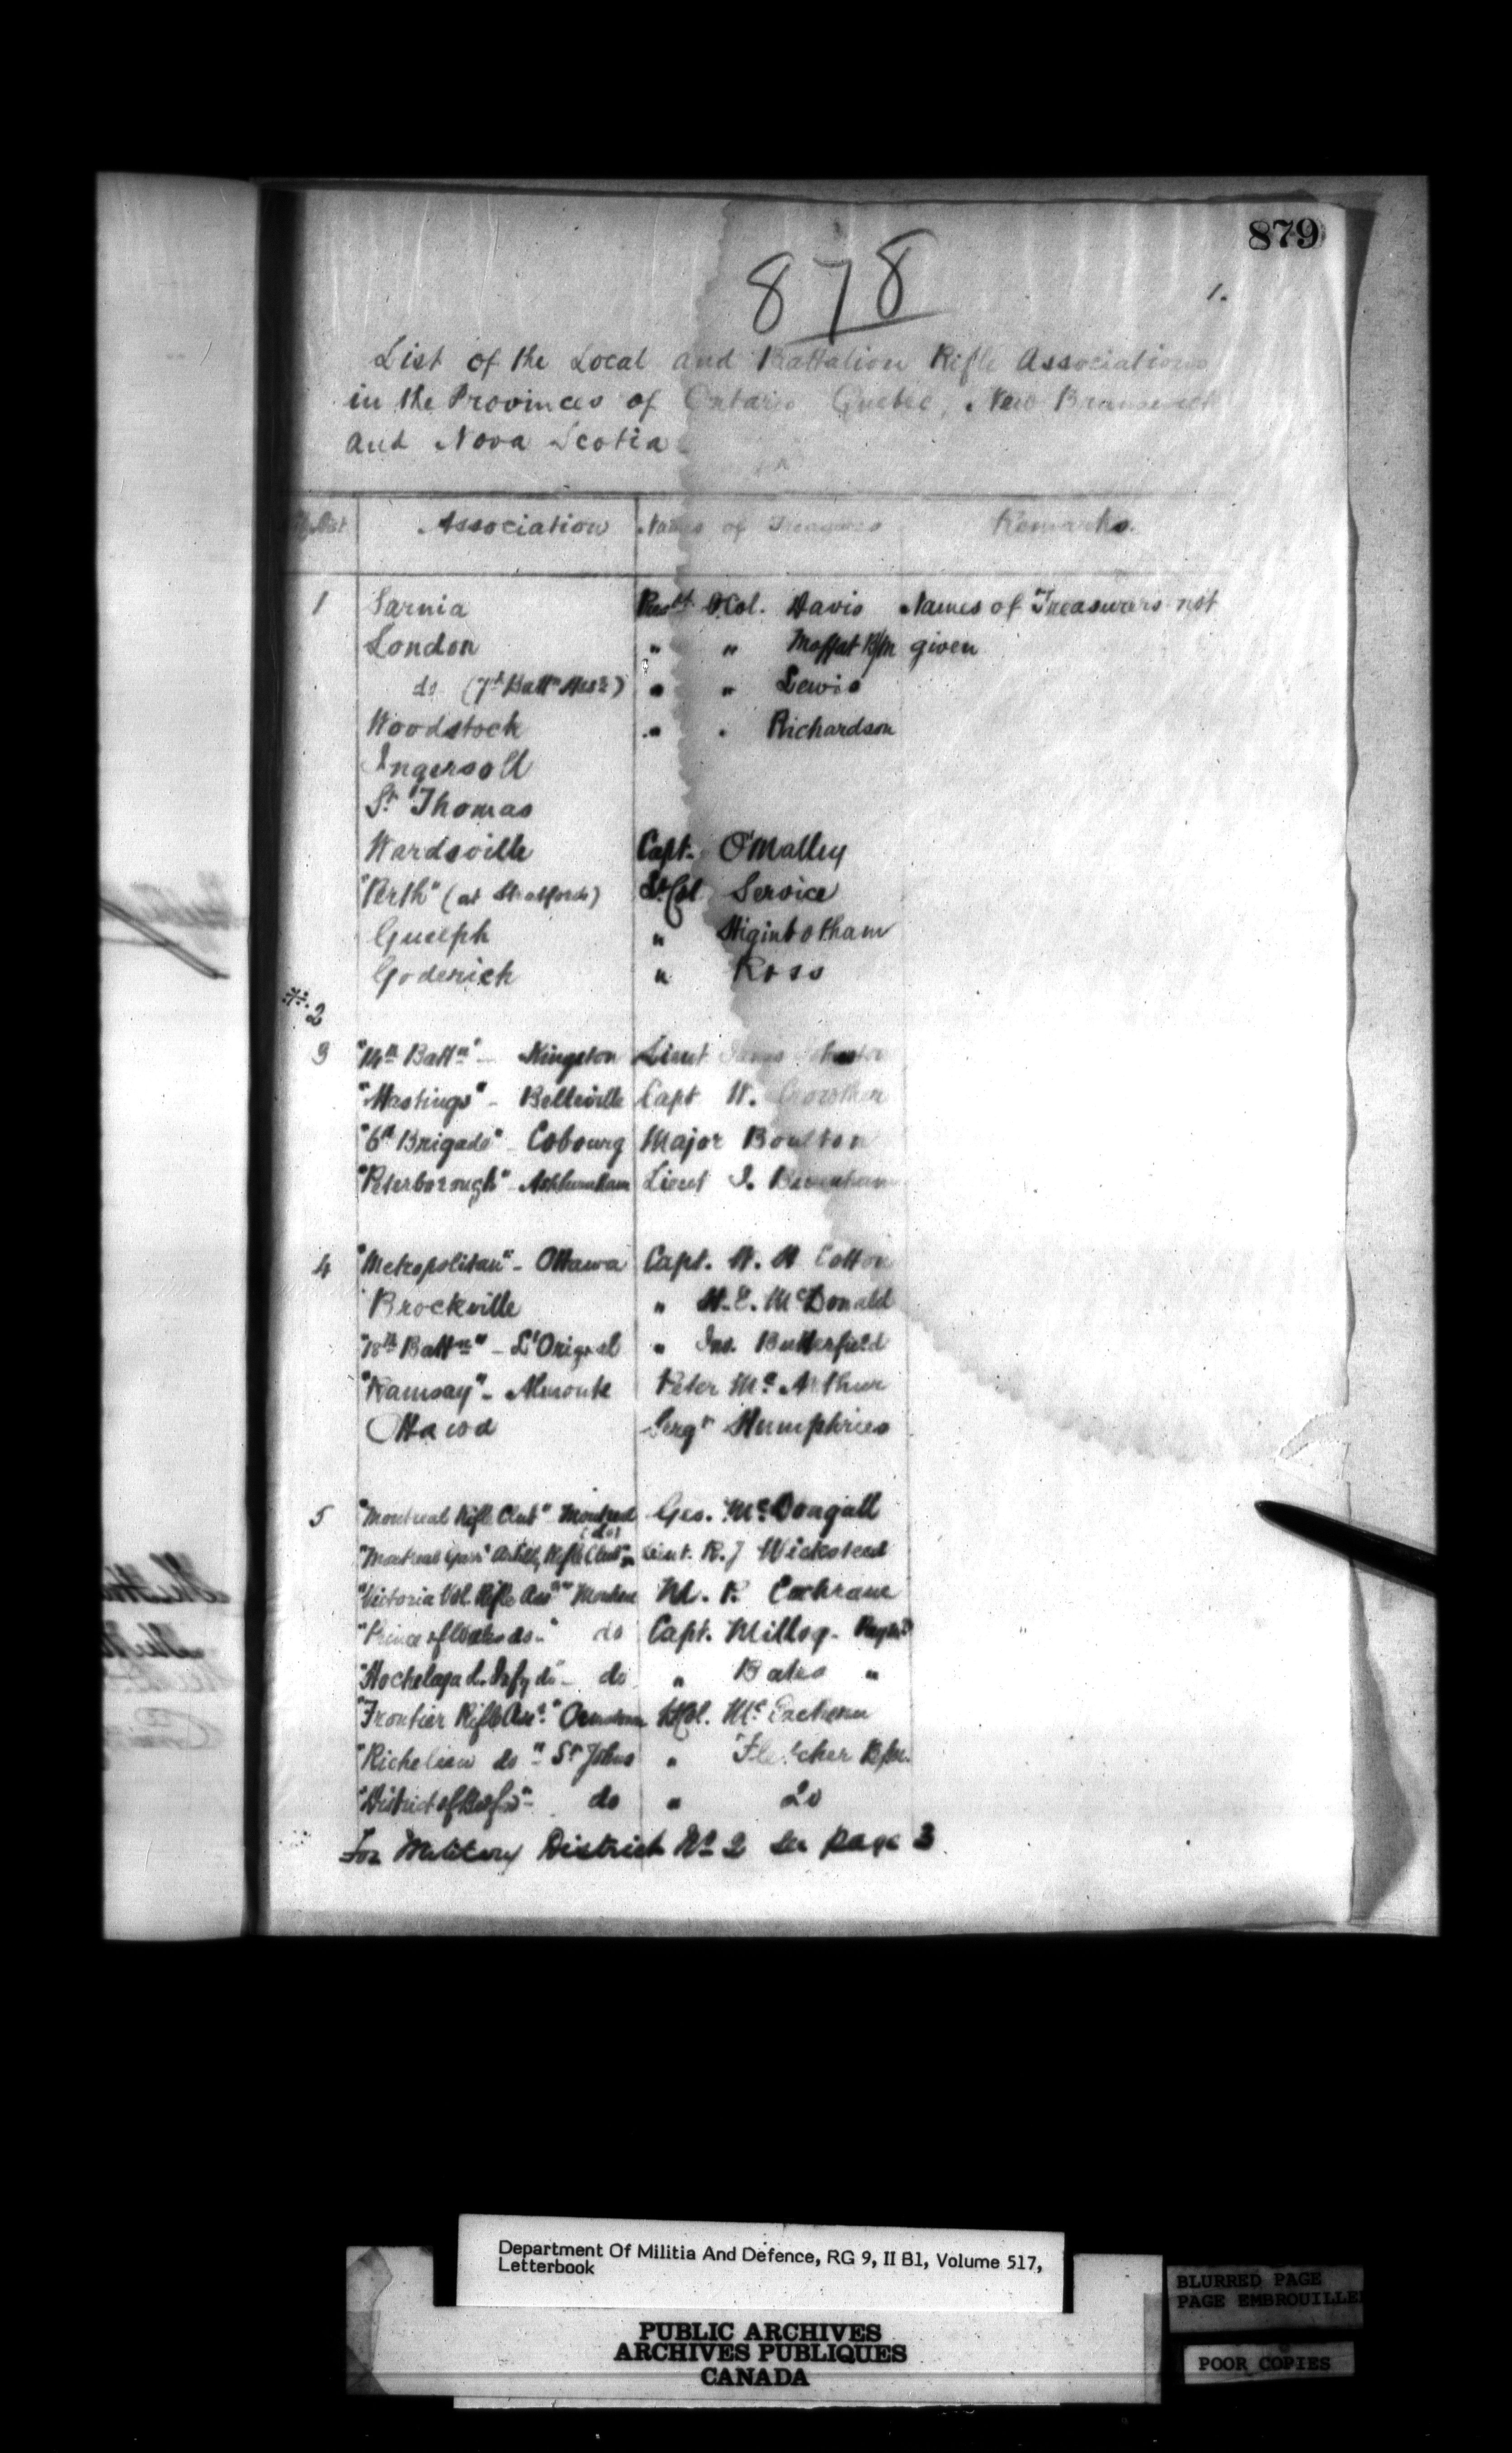 879
878
1.
List of the Local and Battalion Rifle Associations
in the Provinces of Ontario Quebec, New Brunswick
and Nova Scotia
Dist Association Names of Treasurers Remarks.
1 Sarnia Presdt Lt Col. Davis Names of Treasurers not
London " " Moffat B/M given
do (7th Battn Assn) " " Lewis
Woodstock " " Richardson
Ingersoll
St Thomas
Wardsville Capt. O'Malley
"Perth" (at Stratford) Lt Col Service
Guelph " Higinbotham
Goderich " Ross
2
3 "14th Battn" - Kingston Lieut
"Hastings" - Belleville Capt W. Crowther
"6th Brigade" - Cobourg Major Boulton
"Peterborough" - Ashburnham Lieut I. Burnham
4 "Metropolitan" - Ottawa Capt. W. H Cotton
Brockville " W. E. McDonald
"18th Battn" - L'Orignal " Jno. Butterfield
"Ramsay" - Almonte Peter Mc Arthur
Ottawa Sergt Humphries
5 "Montreal Rifle Club" Montreal Geo. McDougall
"Montreal Garn Artilly Rifle Club" (do) Lieut. R. J Wicksteed
"Victoria Vol. Rifle Assn" Montreal M. R. Cochrane
"Prince of Wales do -" do Capt. Milloy -
"Hochelaga L. Infy do" - do " Bates "
"Frontier Rifle Assn" Lt Col. Mc Eachern
"Richelieu do" - St Johns " Fletcher B/M.
"District of Bedfd" - do " do
For Military District No 2 See page 3
Department Of Militia And Defence, RG 9, II B1, Volume 517,
Letterbook
BLURRED PAGE
PAGE EMBROUILLE
PUBLIC ARCHIVES
ARCHIVES PUBLIQUES
CANADA
POOR COPIES